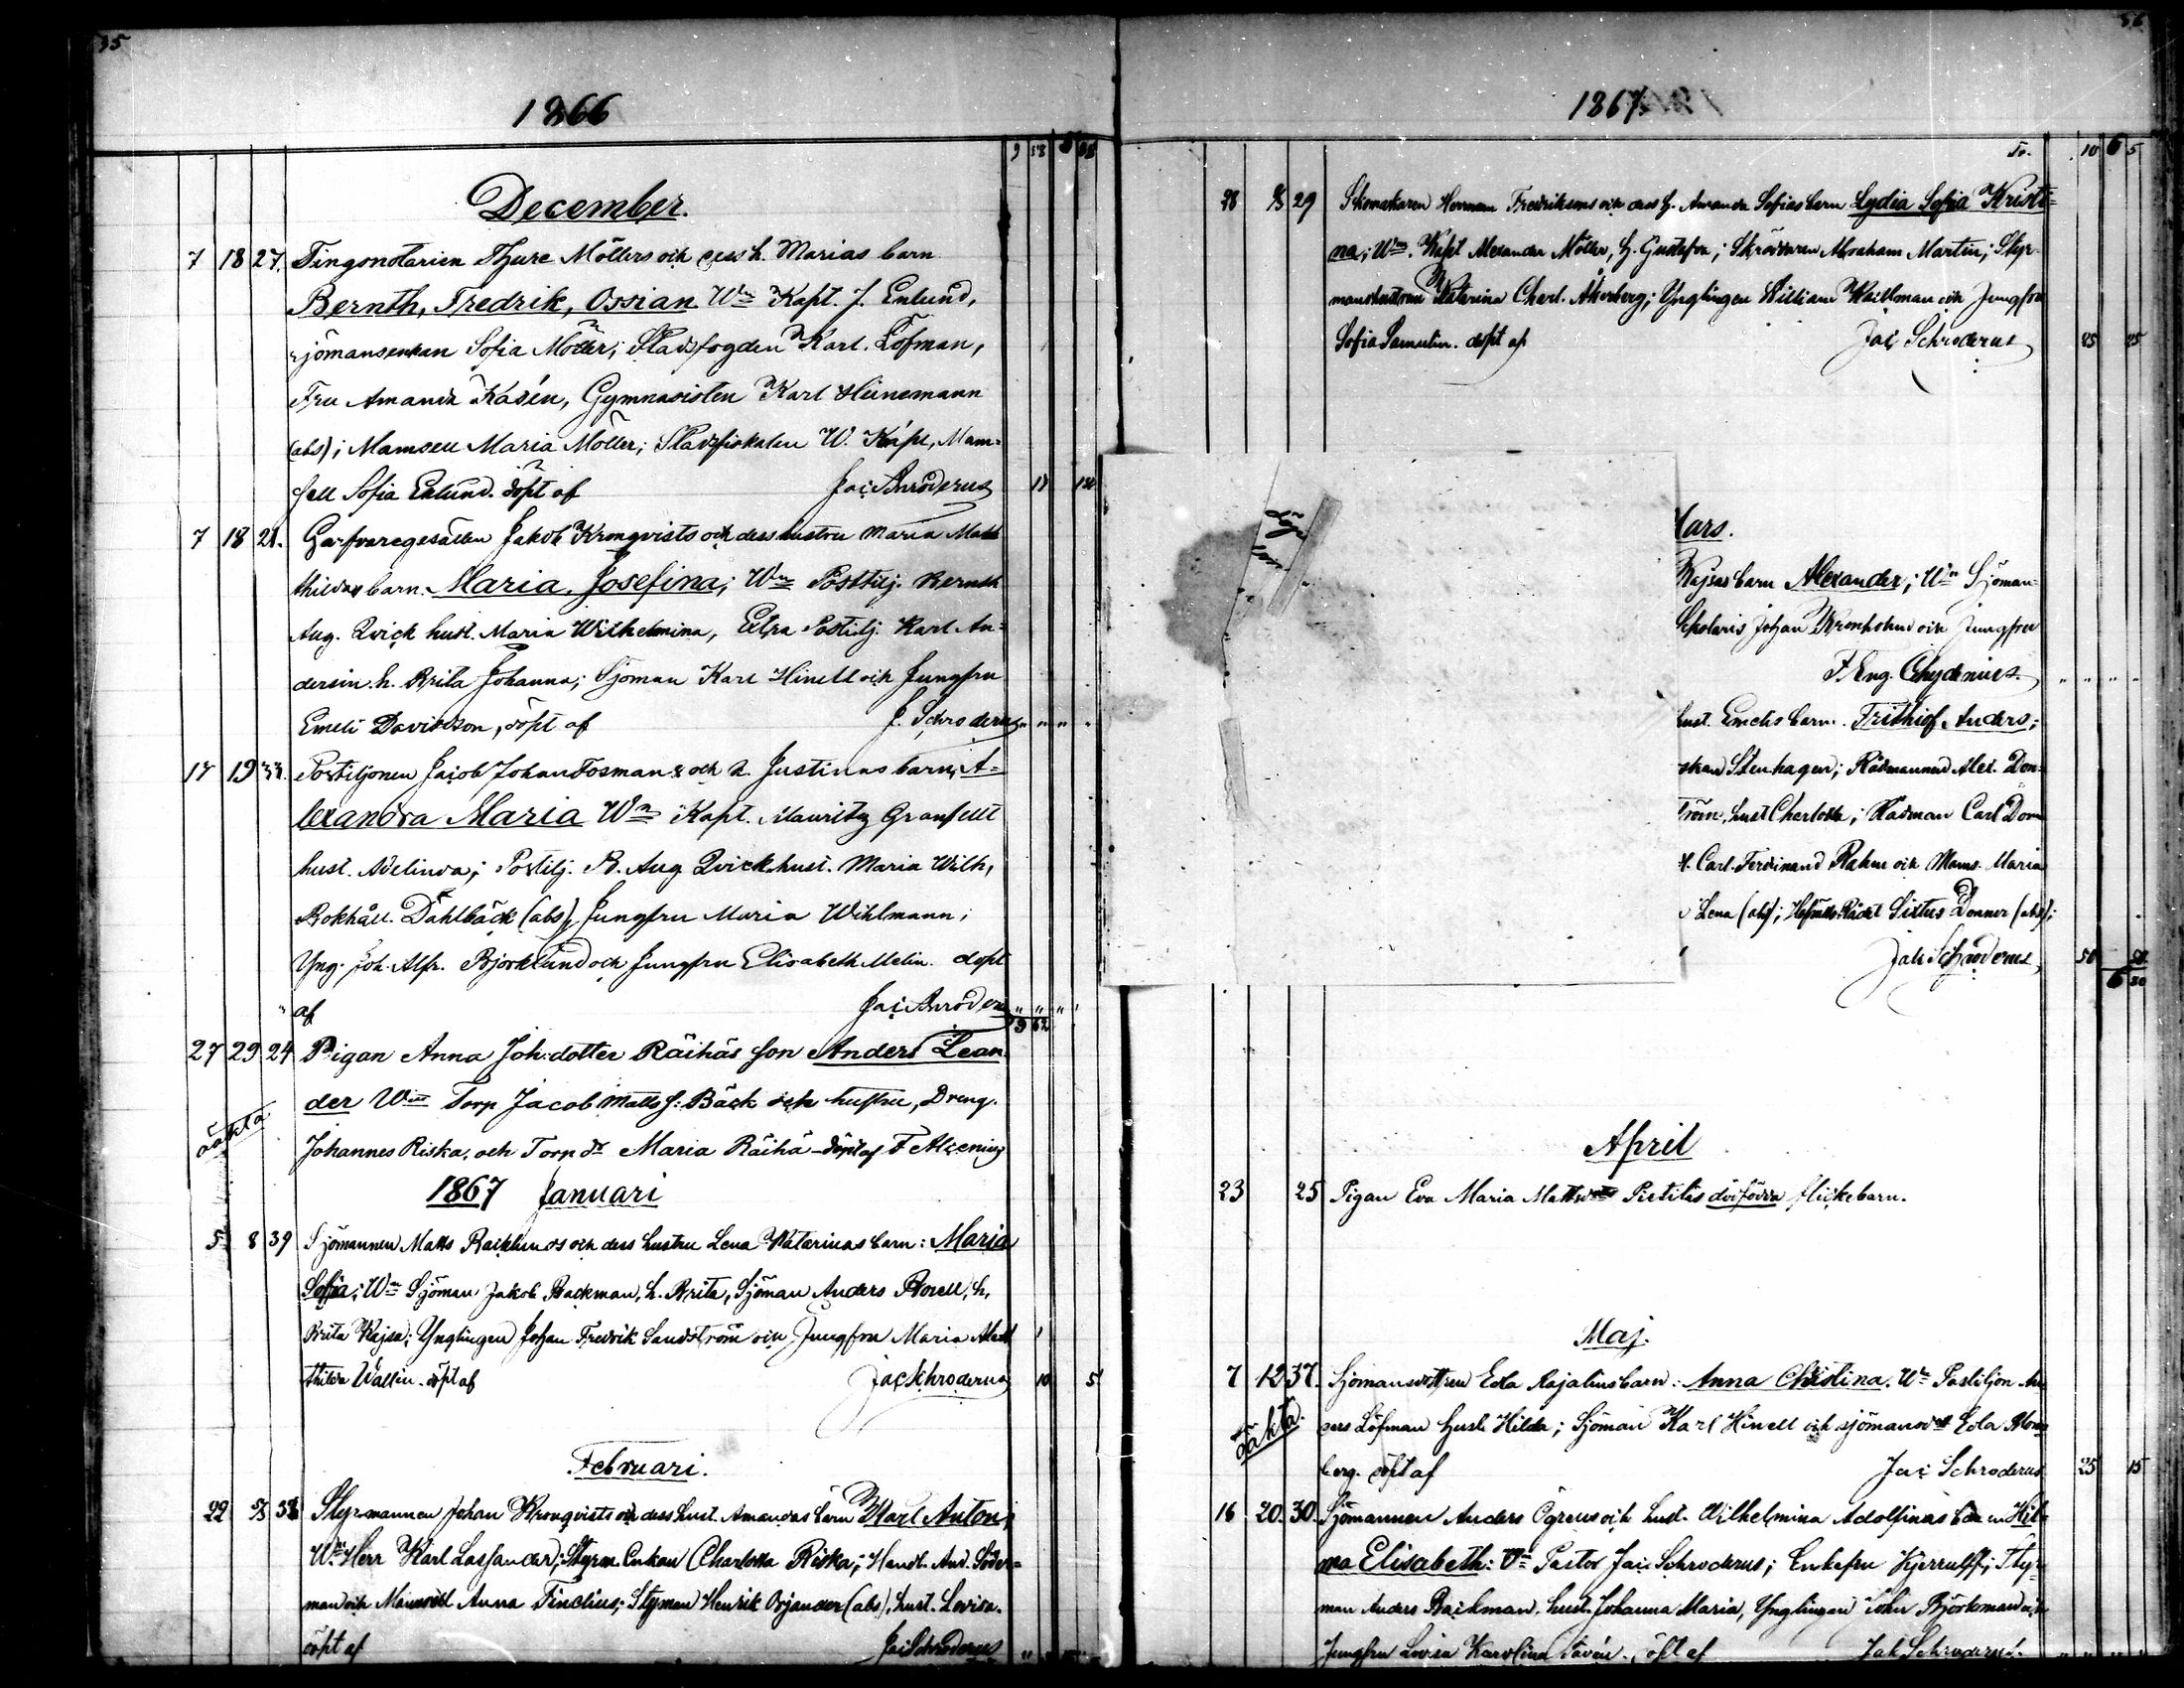 35
1866
9 58 5 88
December.
7 18 27. Tingsnotarien Thure Möllers och dess h. Marias barn
Bernth, Fredrik, Ossian Wn Kapt. J. Enlund,
sjömansenkan Sofia Möller; Stadsfogden Karl Löfman,
Fru Amanda Kasén, Gymnasisten Karl Heinemann
(abs); Mamsell Maria Möller; Stadsfiskalen W. Mam=
sell Sofia Enlund. döpt af Jac Schroderus
7 18 28. Garfvaregesällen Jakob Kronqvists och dess hustru Maria Mat
thildas barn. Maria, Josefina; Wn Posttilj. Bernth
Aug. Qvick hust. Maria Wilhelmina, Extra Postilj. Karl An=
dersin h. Brita Johanna; Sjöman Karl Hinell och Jungfru
Emeli Davidsson, döpt af J. Schroderus
17 19 33. Postiljonen Jacob Johan Fosmans och h. Justinas barn, A=
lexandra Maria Wn Kapt. Mauritz Granfellt
hust. Adelinda; Postilj. B. Aug Qvick hust. Maria Wilh,
Bokhåll. Dahlbäck (abs), Jungfru Maria Wihlmann;
Yng. Joh. Alfr. Björklund och Jungfru Elisabeth Melin. döpt
af Jac Schroderus
9 62
27 29 24 Pigan Anna Joh:dotter Räihäs son Anders Lean
der Wn Torp Jacob Matts s: Bäck och hustru, Dreng.
oäkta
Johannes Riska, och Torp dr Maria Räihä - döpt af F Alcenius
1867 Januari
5 8 39 Sjömannen Matts Backlunds och dess hustru Lena Katarinas barn: Maria
Sofia; Wn Sjöman Jakob Backman, h. Brita, Sjöman Anders Borell, h.
Brita Kajsa; Ynglingen Johan Fredrik Sandström och Jungfru Maria Mat
thilda Wallin. döpt af Jac Schroderus 10 5
Februari.
22 38 Styrmannen Johan Kronqvists och dess hust. Amandas barn Karl Anton;
Wn Herr Karl Lassander; Styrm. Enkan Charlotta Riska; Handl. And. Söder=
man och Mamsell Anna Finelius; Styrman Henrik Orjander (abs), hust. Lovisa.
döpt af Jac Schroderus
56
1867
10 6 5
28 29 Skomakaren Herman Fredriksons och dess h. Amanda Sofias barn Lydia Sofia Kristi=
na; Wn. Kapt Alexander Möller, h. Gustafva; Skräddaren Abraham Martin; Styr=
manshustrun Katarina Charl. Åkerberg; Ynglingen William Waillman och Jungfru
Sofia Samulin. döpt af Jac Schroderus 25 25
Mars.
Kajsas barn Alexander; Wn Sjöman=
Scholaris Johan Kronholm och Jungfru
F. Eug. Chydenius.
hust. Emelis barn. Frithiof Anders;
Stenhagen; Rådmannen Alex. Don=
ström, hust Charlotta; Rådman Carl Don
Carl. Ferdinand Rahm och Mams. Maria
Lena (abs); Hofrätts Rådet Sixtus Donner (abs);
Jak Schroderus 50 50
6 30
April
23 25 Pigan Eva Maria Pietilis dödfödda flickebarn.
Maj.
7 12 37. Sjömansdottren Edla Rajalins barn: Anna Christina. Wn Postiljon An
oäkta.
ders Löfman hust. Hilda; Sjöman Karl Hinell och sjömansdr Edla Blom
berg. döpt af Jac Schroderus 25 15
16 20. 30. Sjömannen Anders Ögrens och hust. Wilhelmina Adolfinas barn Hil
ma Elisabeth: Wn Pastor Jac Schroderus; Enkefru Kjerrulff; Styr
man Anders Backman, hust. Johanna Maria, Ynglingen John Björkman och
Jungfru Lovisa Karolina Tavén, döpt af Jak Schroderus.